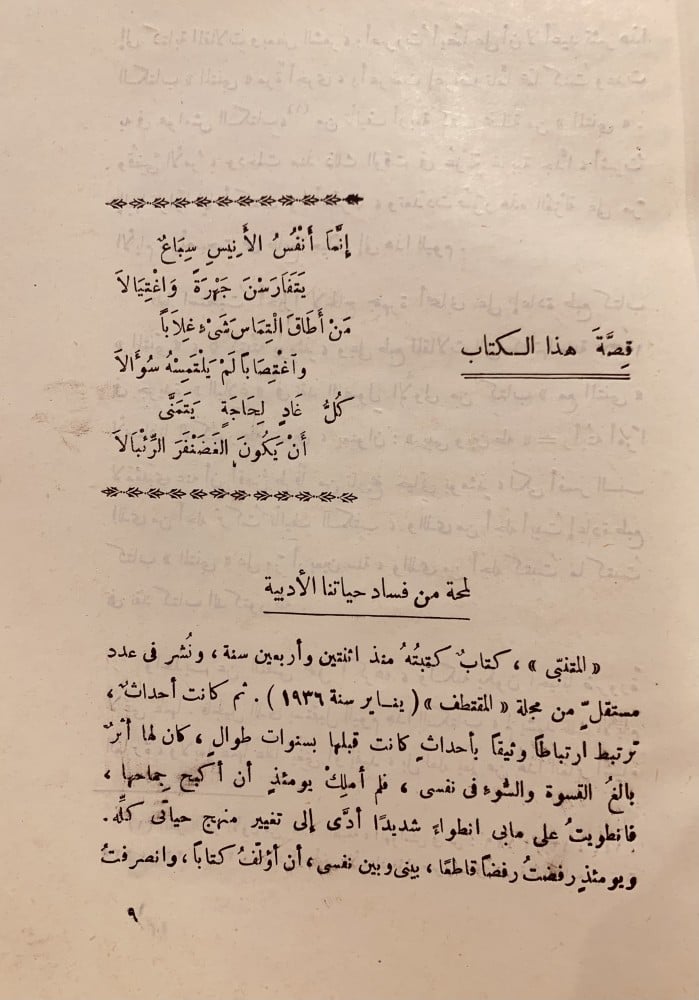 إِنَّمَا أَنْفُسُ الأَنِيسِ سِبَاعٌ
يَتَفَارَسْنَ جَهْرَةً وَاغْتِيَالاَ
مَنْ أَطَاقَ الْتِمَاسَ شَىْءٍ غِلَاباً
وَاغْتِصَاباً لَمْ يَلْتَمِسْهُ سُؤَالاَ
كُلُّ غَادٍ لِحَاجَةٍ يَتَمَنَّى
أَنْ يَكُونَ الغَضَنْفَرَ الرِّئْبَالاَ
قِصَّةُ هذا الـكتاب
لمحة من فساد حياتنا الأدبية
« المتنبّى » ، كتابٌ كتبتُهُ منذ اثنتين وأربعين سنة ، ونُشر فى عدد
مستقلٍّ من مجلة « المقتطف » ( ينـاير سنة ١٩٣٦ ) . ثم كانت أحداثٌ ،
ترتبط ارتباطاً وثيقاً بأحداثٍ كانت قبلها بسنوات طوالٍ ، كان لها أثرٌ
بالغُ القسوة والسُّوء فى نفسى ، فلم أملِكْ يومئذٍ أن أكبح جِماحها ،
فانطويتُ على مابى انطواءً شديدًا أدَّى إلى تغيير منهج حياتى كلِّه .
ويومئذٍ رفضتُ رفضاً قاطعًا ، بينى وبين نفسى ، أن أؤلّفُ كتاباً ، وانصرفتُ
٩